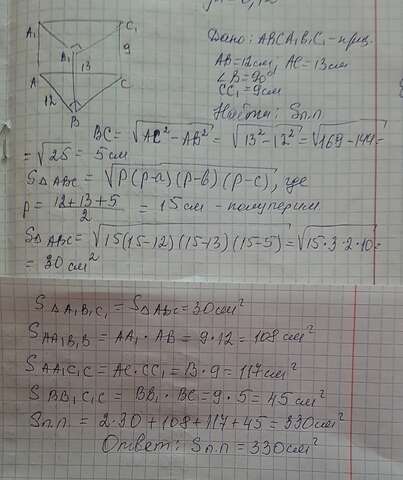 A₁ C₁
A₁ 9
13
A C
12
B
Дано: ABCA₁B₁C₁ - приз.
AB=12см, AC=13см
∠B=90°
CC₁=9см
Найти: Sп.п
BC = √AC²-AB² = √13²-12² = √169-144 =
= √25 = 5 см
S△ABC = √P(P-a)(P-b)(P-c), где
P = 12+13+5/2 = 15см - полуперим.
S△ABC = √15(15-12)(15-13)(15-5) = √15·3·2·10 =
= 30 см²
S△A₁B₁C₁ = S△ABC = 30см²
SAA₁B₁B = AA₁·AB = 9·12 = 108 см²
SAA₁C₁C = AC·CC₁ = 13·9 = 117см²
SBB₁C₁C = BB₁·BC = 9·5 = 45 см²
Sп.п. = 2·30+108+117+45 = 330см²
Ответ: Sп.п = 330см²